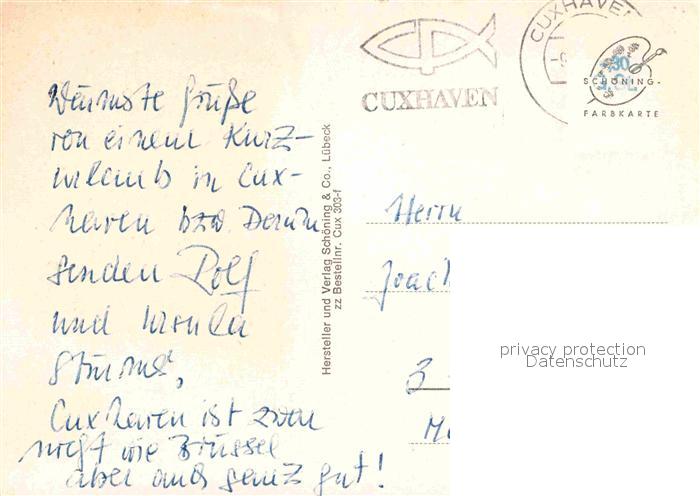 CUXHAVEN
CUXHAVEN
30
SCHÖNING-
FARBKARTE
Wärmste Grüße
von einem Kurz-
urlaub in Cux-
haven bzw. Dorum
senden Rolf
und Ursula
Cuxhaven ist zwar
nicht wie Brüssel
aber auch ganz gut!
Hersteller und Verlag Schöning & Co., Lübeck
zz Bestellnr. Cux 303-f
Herrn
Joach
3
privacy protection
Datenschutz